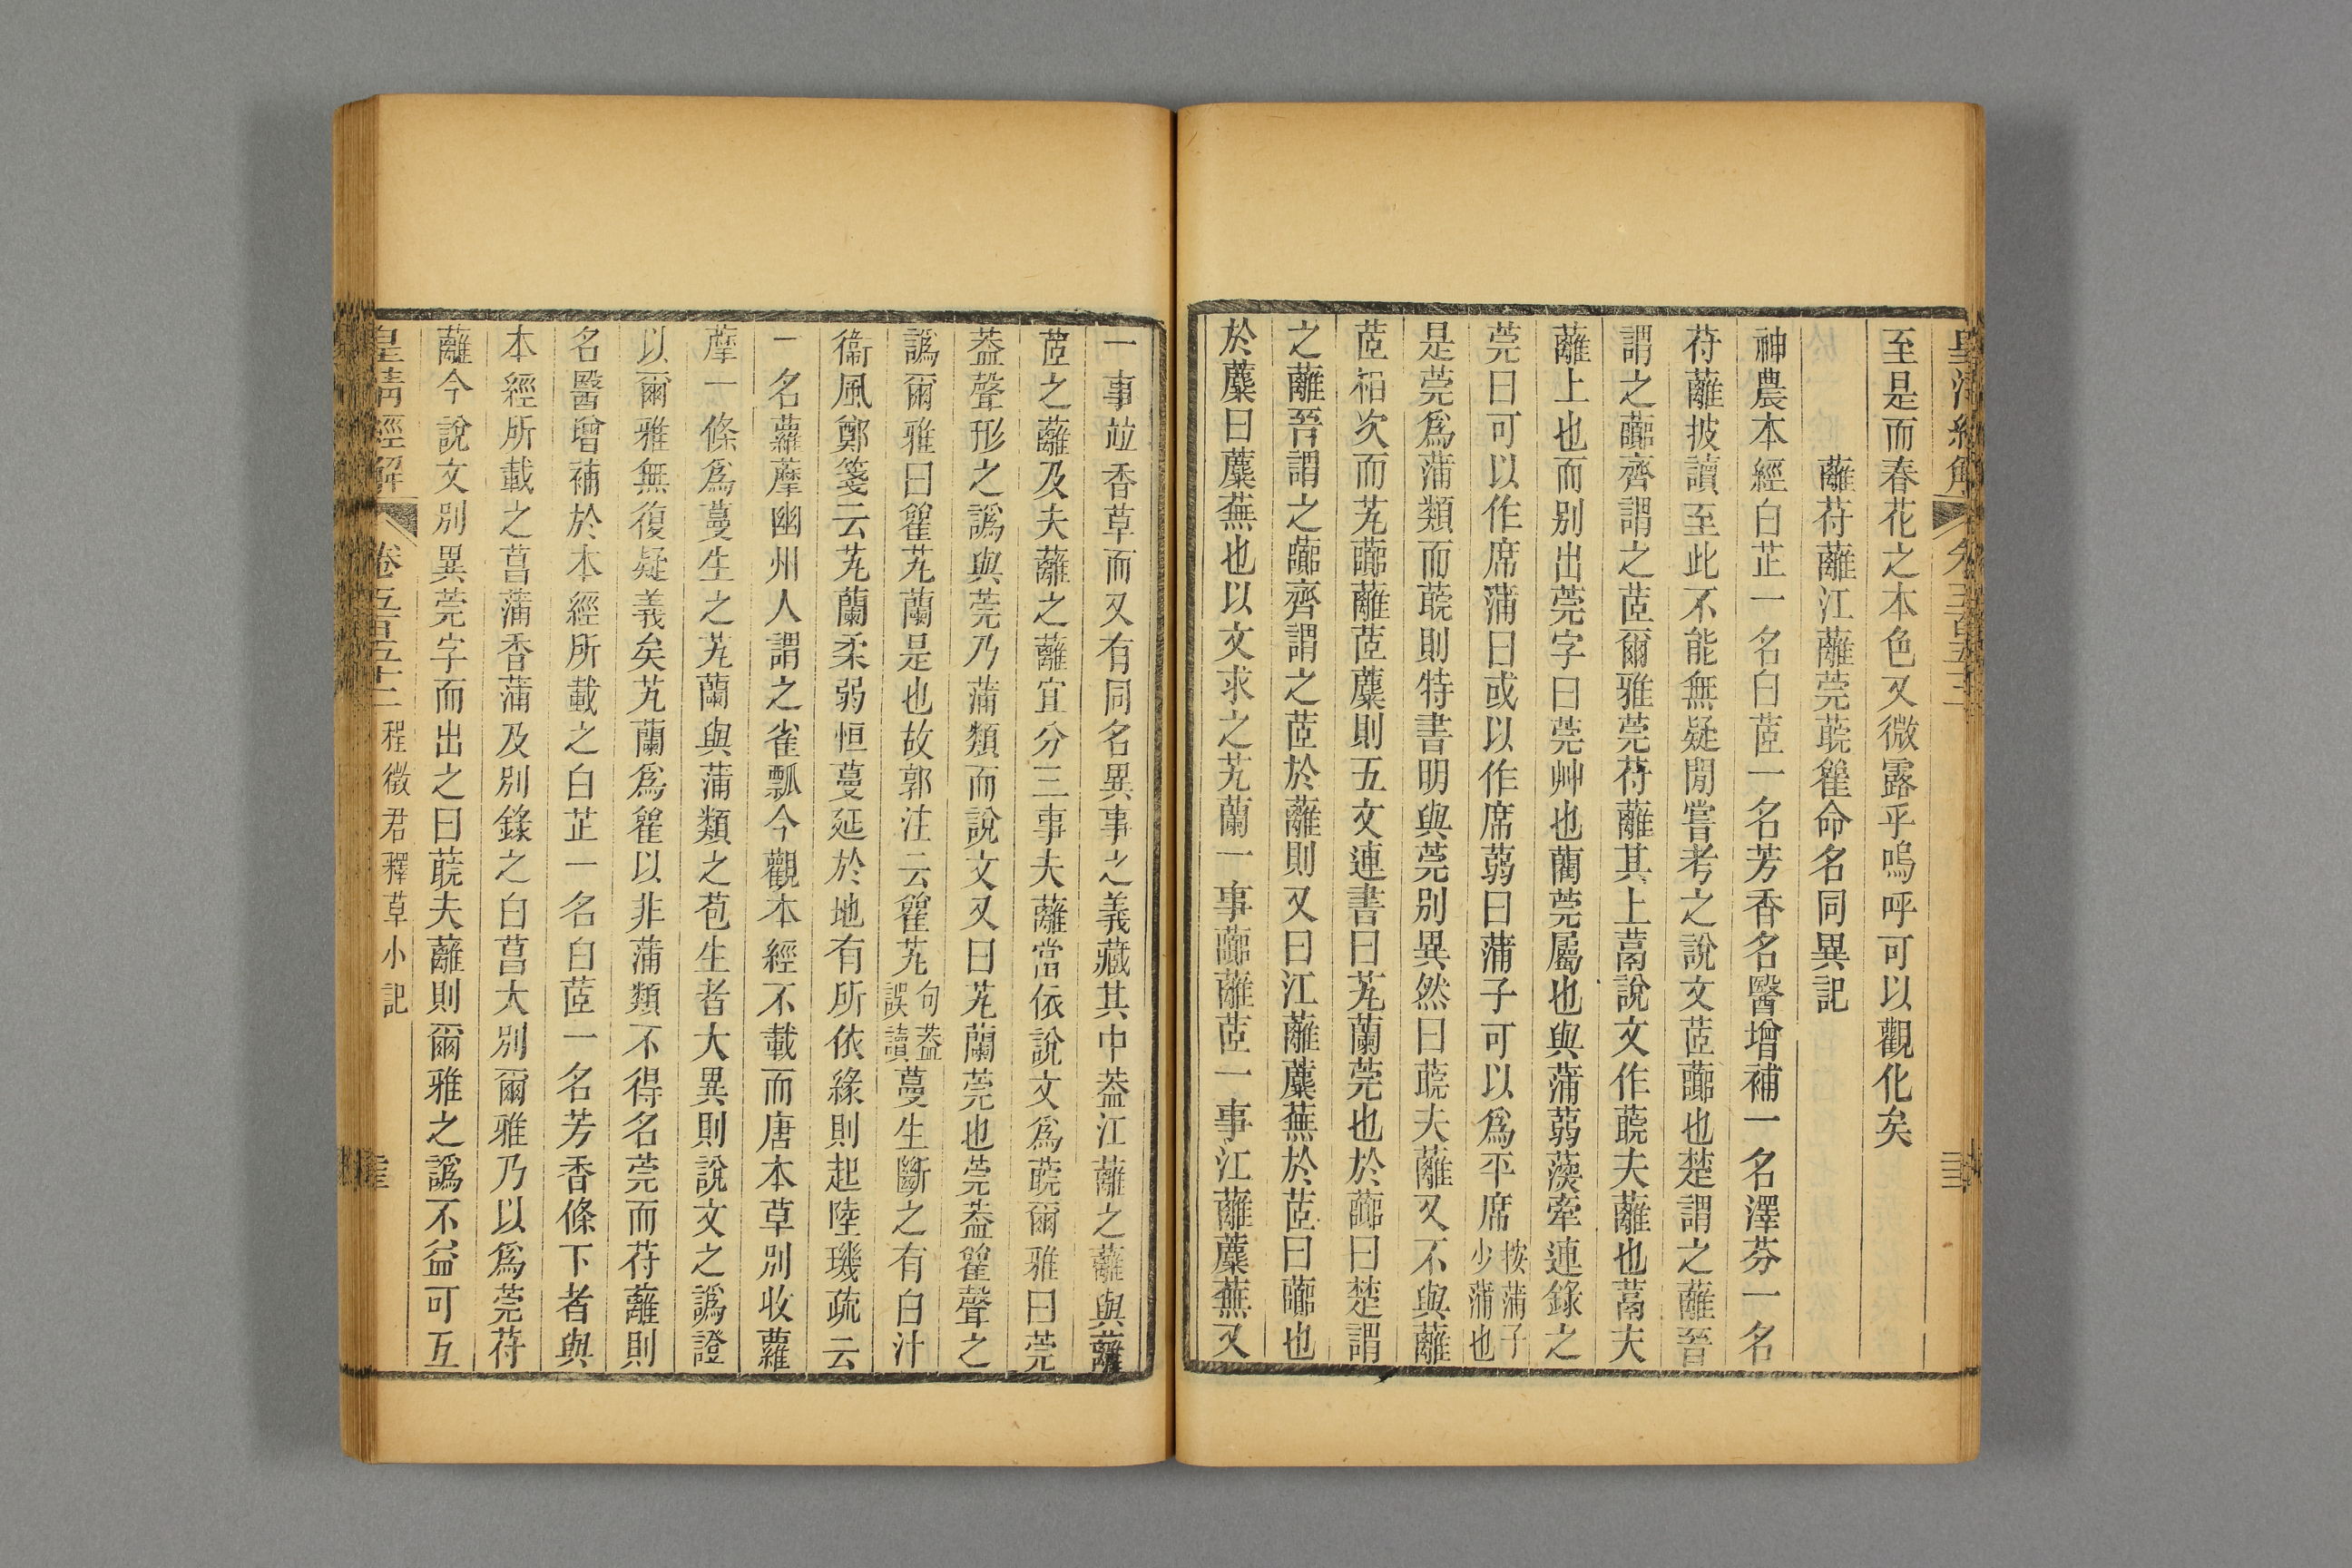 至是而春花之本色又微露乎嗚呼可以觀化矣
蘺苻蘺江蘺莞䕀雈命名同異記
神農本經白芷一名白茝一名芳香名醫增補一名澤芬一名
苻蘺披讀至此不能無疑閒嘗考之說文茝虈也楚謂之蘺晉
謂之虈齊謂之茝爾雅莞苻蘺其上蒚說文作䕀夫蘺也蒚夫
蘺上也而別出莞字曰莞艸也藺莞屬也與蒲蒻蒤牽連錄之
莞曰可以作席蒲曰或以作席蒻曰蒲子可以爲平席按蒲子少蒲也
是莞爲蒲類而䕀則特書明與莞別異然曰䕀夫蘺又不與蘺
茝相次而芄虈蘺茝蘪則五文連書曰芄蘭莞也於虈曰楚謂
之蘺晉謂之虈齊謂之茝於蘺則又曰江蘺蘪蕪於茝曰虈也
於蘪曰蘪蕪也以文求之芄蘭一事虈蘺茝一事江蘺蘪蕪又
一事竝香草而又有同名異事之義藏其中葢江蘺之蘺與蘺
茝之蘺及夫蘺之蘺宜分三事夫蘺當依說文爲䕀爾雅曰莞
葢聲形之譌與莞乃蒲類而說文又曰芄蘭莞也莞葢雚聲之
譌爾雅曰雚芄蘭是也故郭注云雚芄句葢誤讀蔓生斷之有白汁
衞風鄭箋云芄蘭柔弱恒蔓延於地有所依緣則起陸璣疏云
一名蘿藦幽州人謂之雀瓢今觀本經不載而唐本草別收蘿
藦一條爲蔓生之芄蘭與蒲類之苞生者大異則說文之譌證
以爾雅無復疑義矣芄蘭爲雚以非蒲類不得名莞而苻蘺則
名醫增補於本經所載之白芷一名白茝一名芳香條下者與
本經所載之菖蒲香蒲及別錄之白菖大別爾雅乃以爲莞苻
蘺今說文別異莞字而出之曰䕀夫蘺則爾雅之譌不益可互
皇淸經解 卷五百五十二 程徵君釋草小記